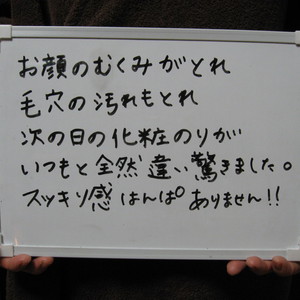 お顔のむくみがとれ
毛穴の汚れもとれ
次の日の化粧のりが
いつもと全然違い驚きました。
スッキリ感はんぱありません!!